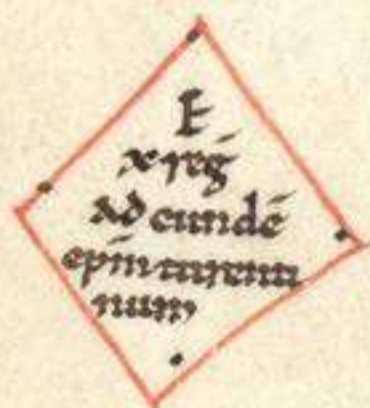 E
x reḡ
ad eundē
ep̄m tarenti
num